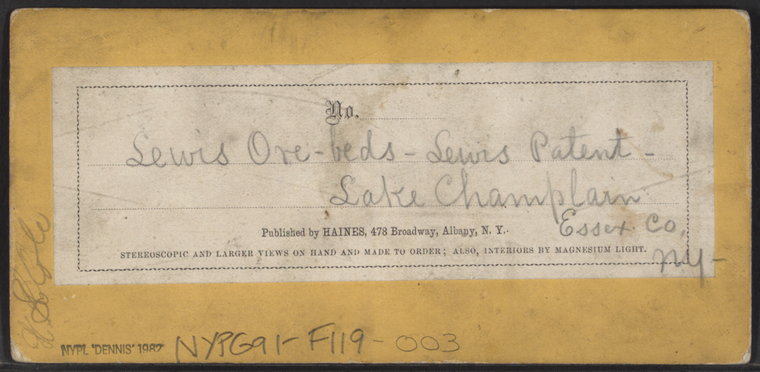 No.
Lewis Ore-beds - Lewis Patent -
Lake Champlain
Essex Co.
NY-
Published by HAINES, 478 Broadway, Albany, N. Y.
STEREOSCOPIC AND LARGER VIEWS ON HAND AND MADE TO ORDER; ALSO, INTERIORS BY MAGNESIUM LIGHT.
NYPL 'DENNIS' 1987
NYPG91-F119-003